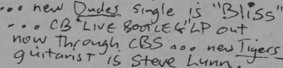 ... new Dudes single is "Bliss"
... CB "LIVE BOOTLEG" LP out
now through CBS ... new Tigers
guitarist is Steve Lunn.